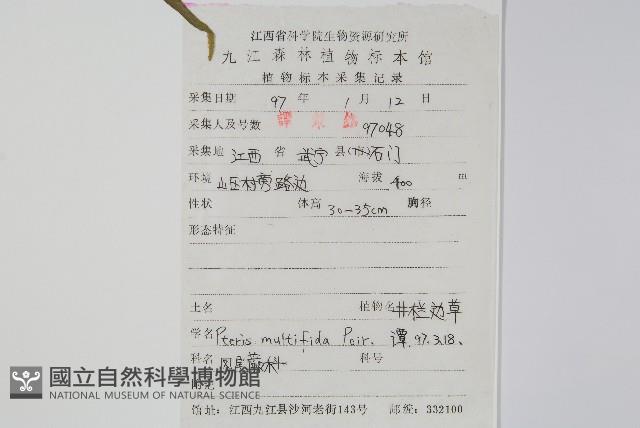 江西省科学院生物资源研究所
九江森林植物标本馆
植物标本采集记录
采集日期 97 年 1 月 12 日
采集人及号数 97048
采集地 江西 省 武宁 县(市)石门
环境 路边 海拔 400 m
性状 体高 30-35cm 胸径
形态特征
土名 植物名 井栏边草
学名 Pteris multifida Poir. 谭 97.3.18.
科名 凤尾蕨科 科号
附记
國立自然科學博物館
NATIONAL MUSEUM OF NATURAL SCIENCE
馆址:江西九江县沙河老街143号 邮编:332100